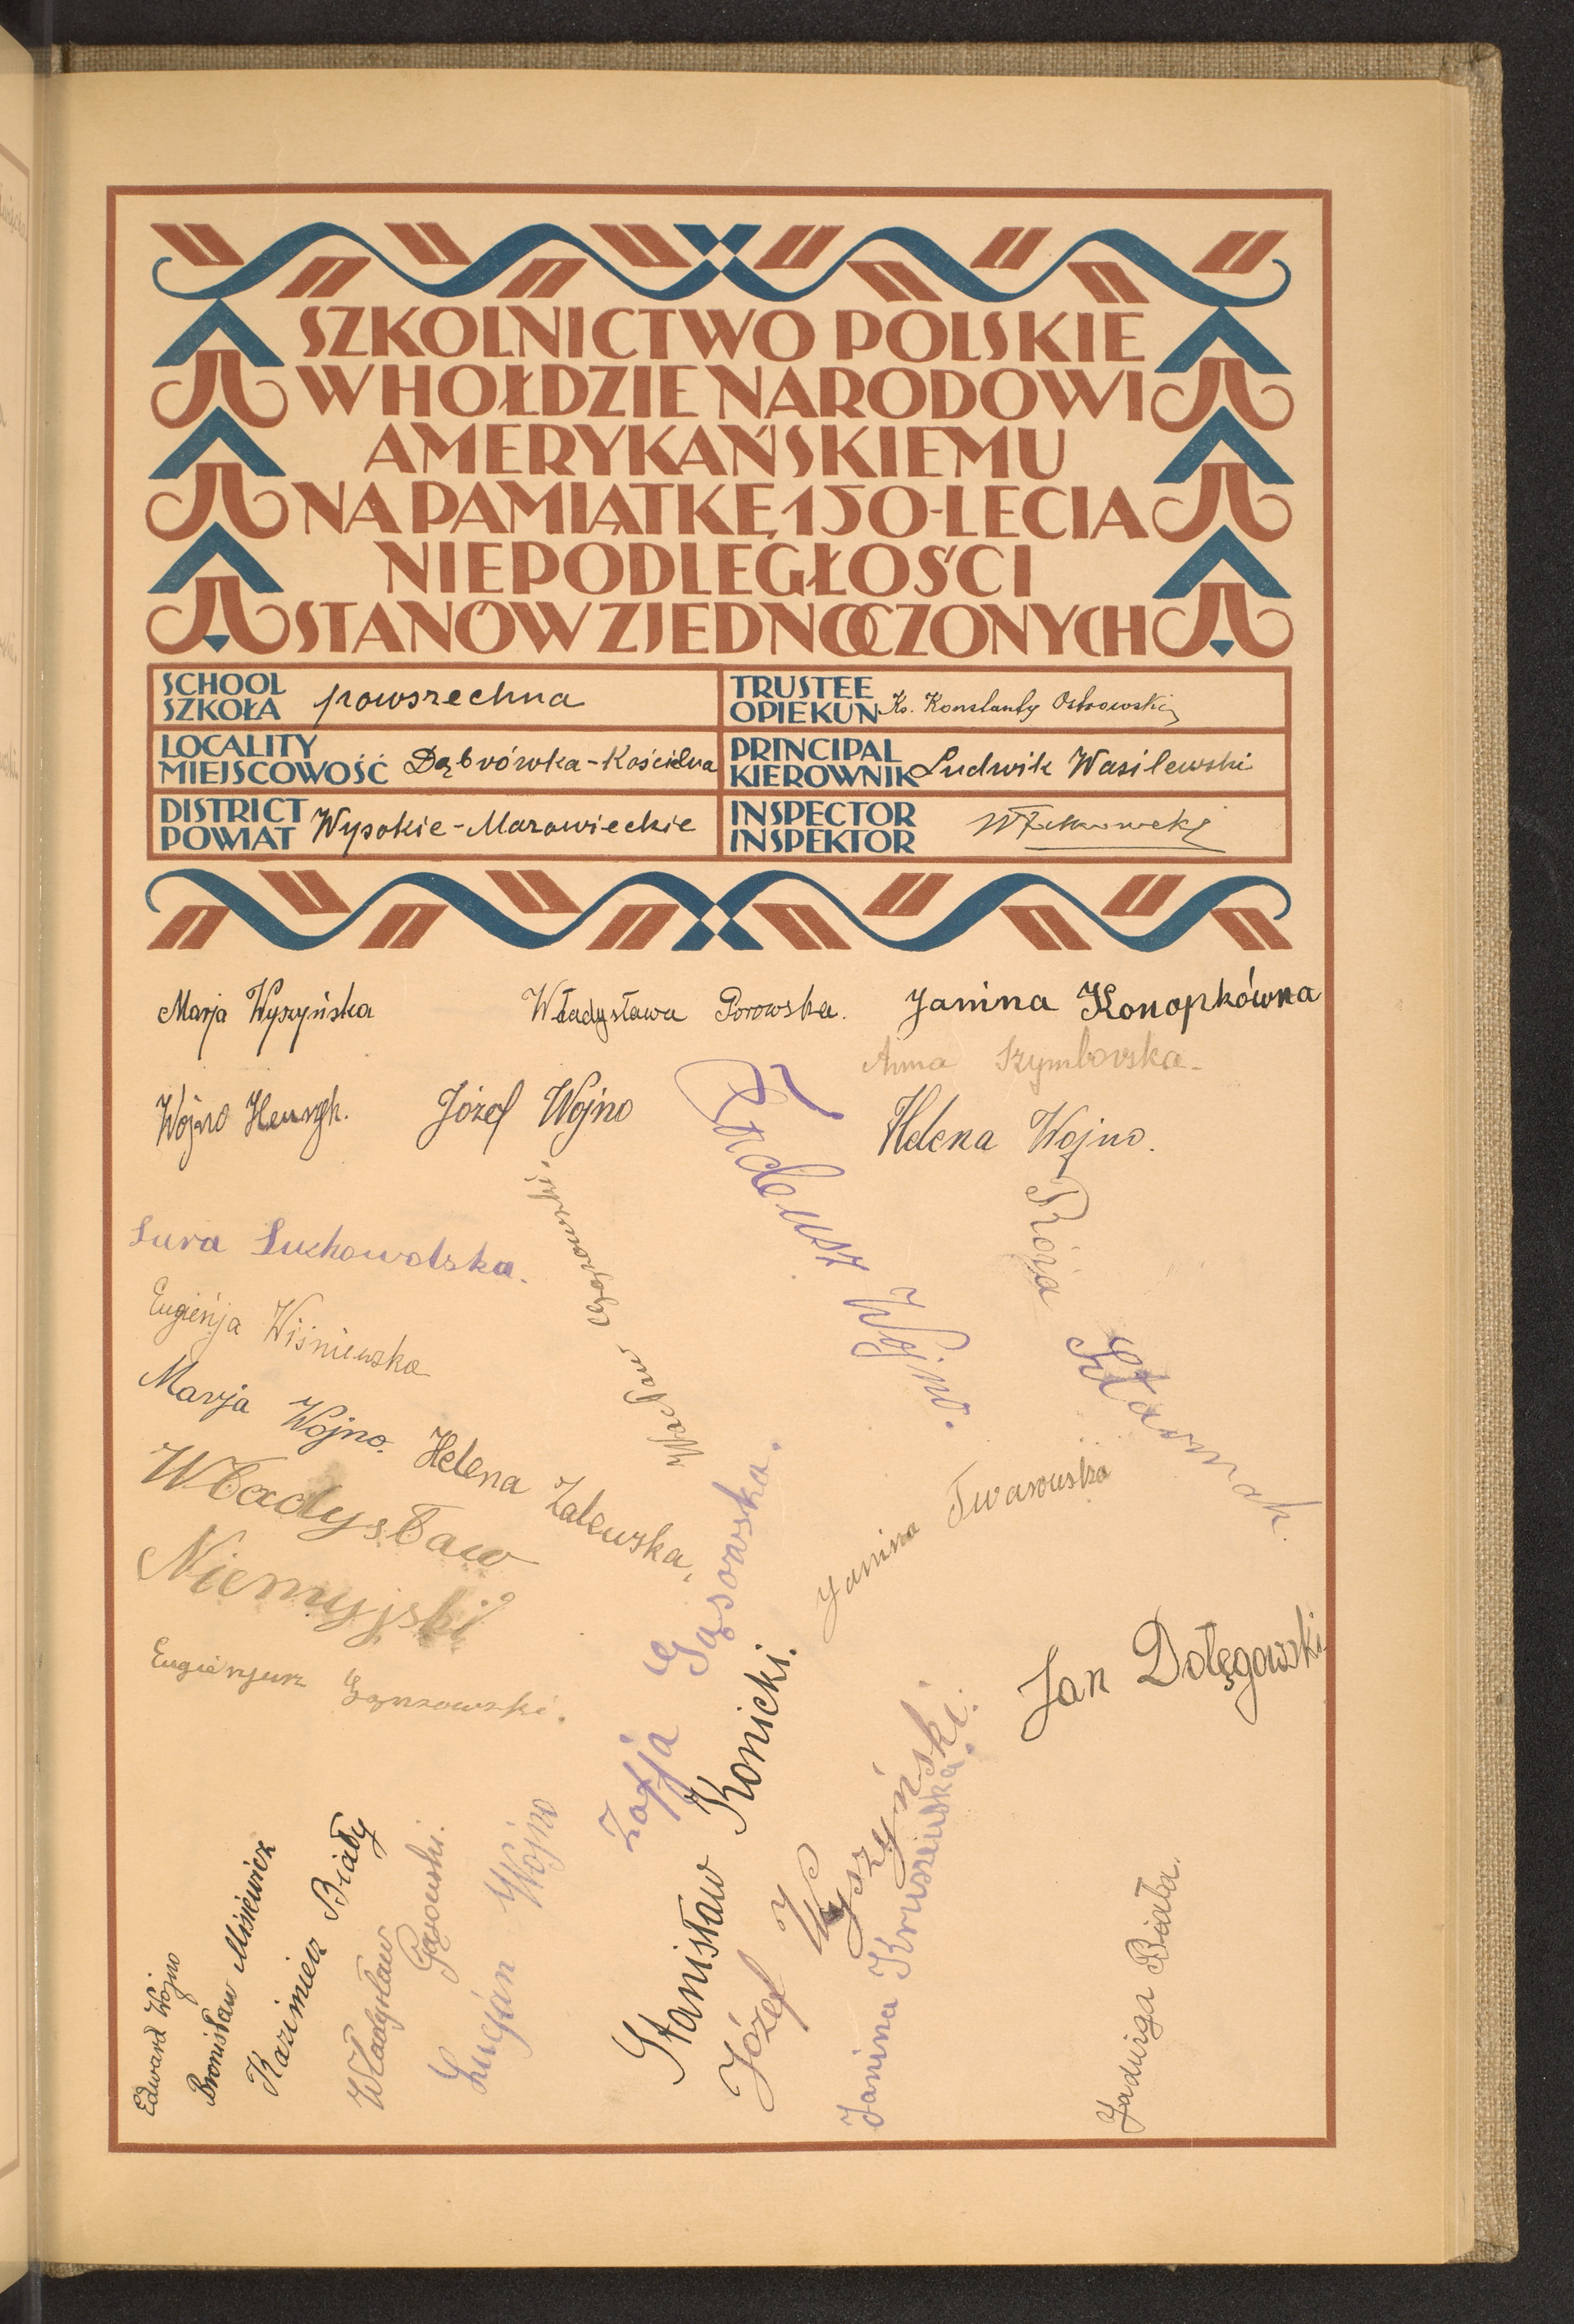 SZKOLNICTWO POLSKIE
W HOŁDZIE NARODOWI
AMERYKAŃSKIEMU
NA PAMIĄTKĘ 150-LECIA
NIEPODLEGŁOŚCI
STANÓW ZJEDNOCZONYCH
SCHOOL
SZKOŁA powszechna
TRUSTEE
OPIEKUN Ks. Konstanty Ostrowski
LOCALITY
MIEJSCOWOŚĆ Dąbrówka-Kościelna
PRINCIPAL
KIEROWNIK Ludwik Wasilewski
DISTRICT
POWIAT Wysokie-Mazowieckie
INSPECTOR
INSPEKTOR
Marja Wyszyńska
Władysława Porowska.
Janina Konopkówna
Anna Szymborska
Wojno Henryk.
Józef Wojno
Tadeusz Wojno.
Helena Wojno.
Róża
Sura Suchowolska.
Wacław
Eugienja Wiśniewska
Marja Wojno.
Helena Zalewska,
Władysław
Niemyjski
Janina Twarowska
Eugienjusz Gąsowski.
Zofja Gąsowska.
Jan Dołęgowski
Stanisław Konicki.
Józef Wyszyński.
Janina Kruszewska.
Edward Wojno
Bronisław Misiewicz
Kazimierz Biały
Władysław Gąsowski.
Lucjan Wojno
Jadwiga Biała.